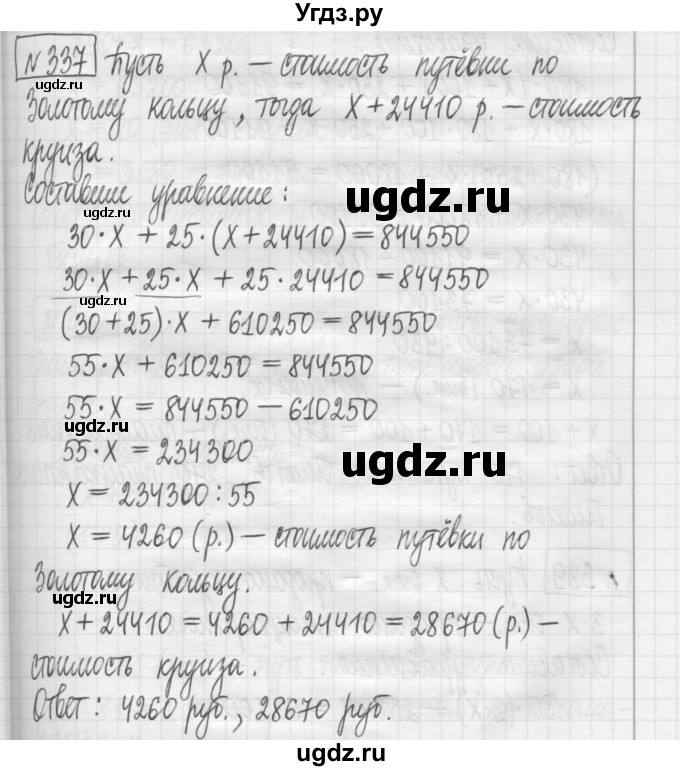 Угдз.ру
№337 Пусть X р. – стоимость путёвки по
Золотому кольцу, тогда X+24410 р. – стоимость
круиза.
Составим уравнение:
ugdz.ru
30·X + 25·(X+24410) = 844550
30·X + 25·X + 25·24410 = 844550
ugdz.ru
(30+25)·X + 610250 = 844550
55·X + 610250 = 844550
55·X = 844550 – 610250
ugdz.ru
55·X = 234300
ugdz.ru
X = 234300:55
X = 4260 (р.) – стоимость путёвки по
Золотому кольцу.
ugdz.ru
X+24410 = 4260 + 24410 = 28670 (р.) –
стоимость круиза.
Ответ: 4260 руб., 28670 руб.
ugdz.ru
ugdz.ru